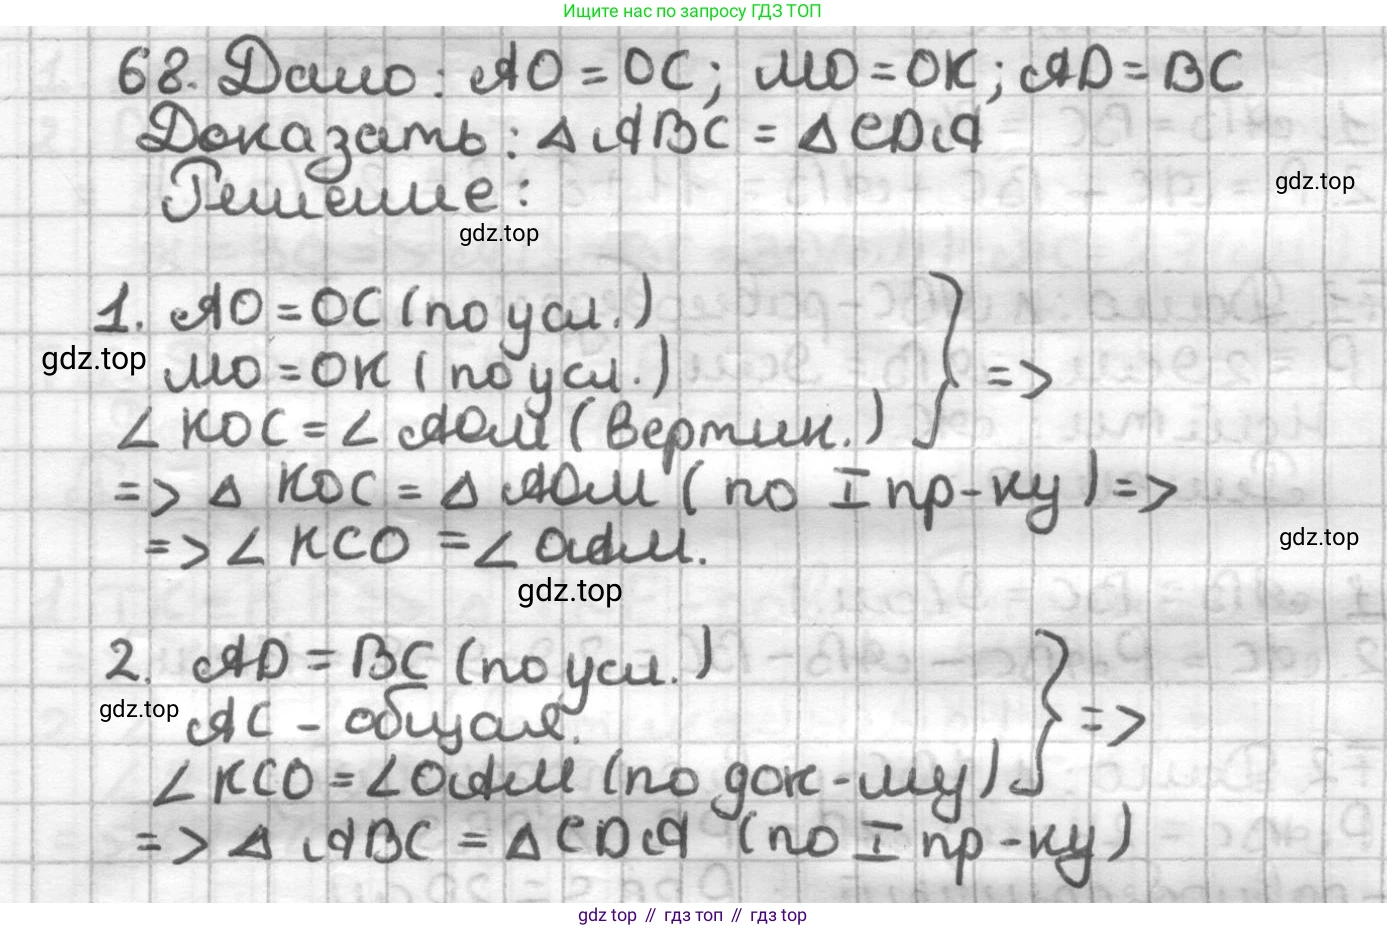 Ищите нас по запросу ГДЗ ТОП
68. Дано: AO = OC; MO = OK; AD = BC
Доказать: Δ ABC = Δ CDA
gdz.top
Решение:
gdz.top
1. AO = OC (по усл.)
gdz.top
MO = OK (по усл.) } =>
∠ KOC = ∠ AOM (вертик.)
=> Δ KOC = Δ AOM (по I пр-ку) =>
=> ∠ KCO = ∠ OAM.
gdz.top
gdz.top
2. AD = BC (по усл.)
gdz.top
AC - общая. } =>
∠ KCO = ∠ OAM (по док-му)
=> Δ ABC = Δ CDA (по I пр-ку)
gdz top // гдз топ // gdz top